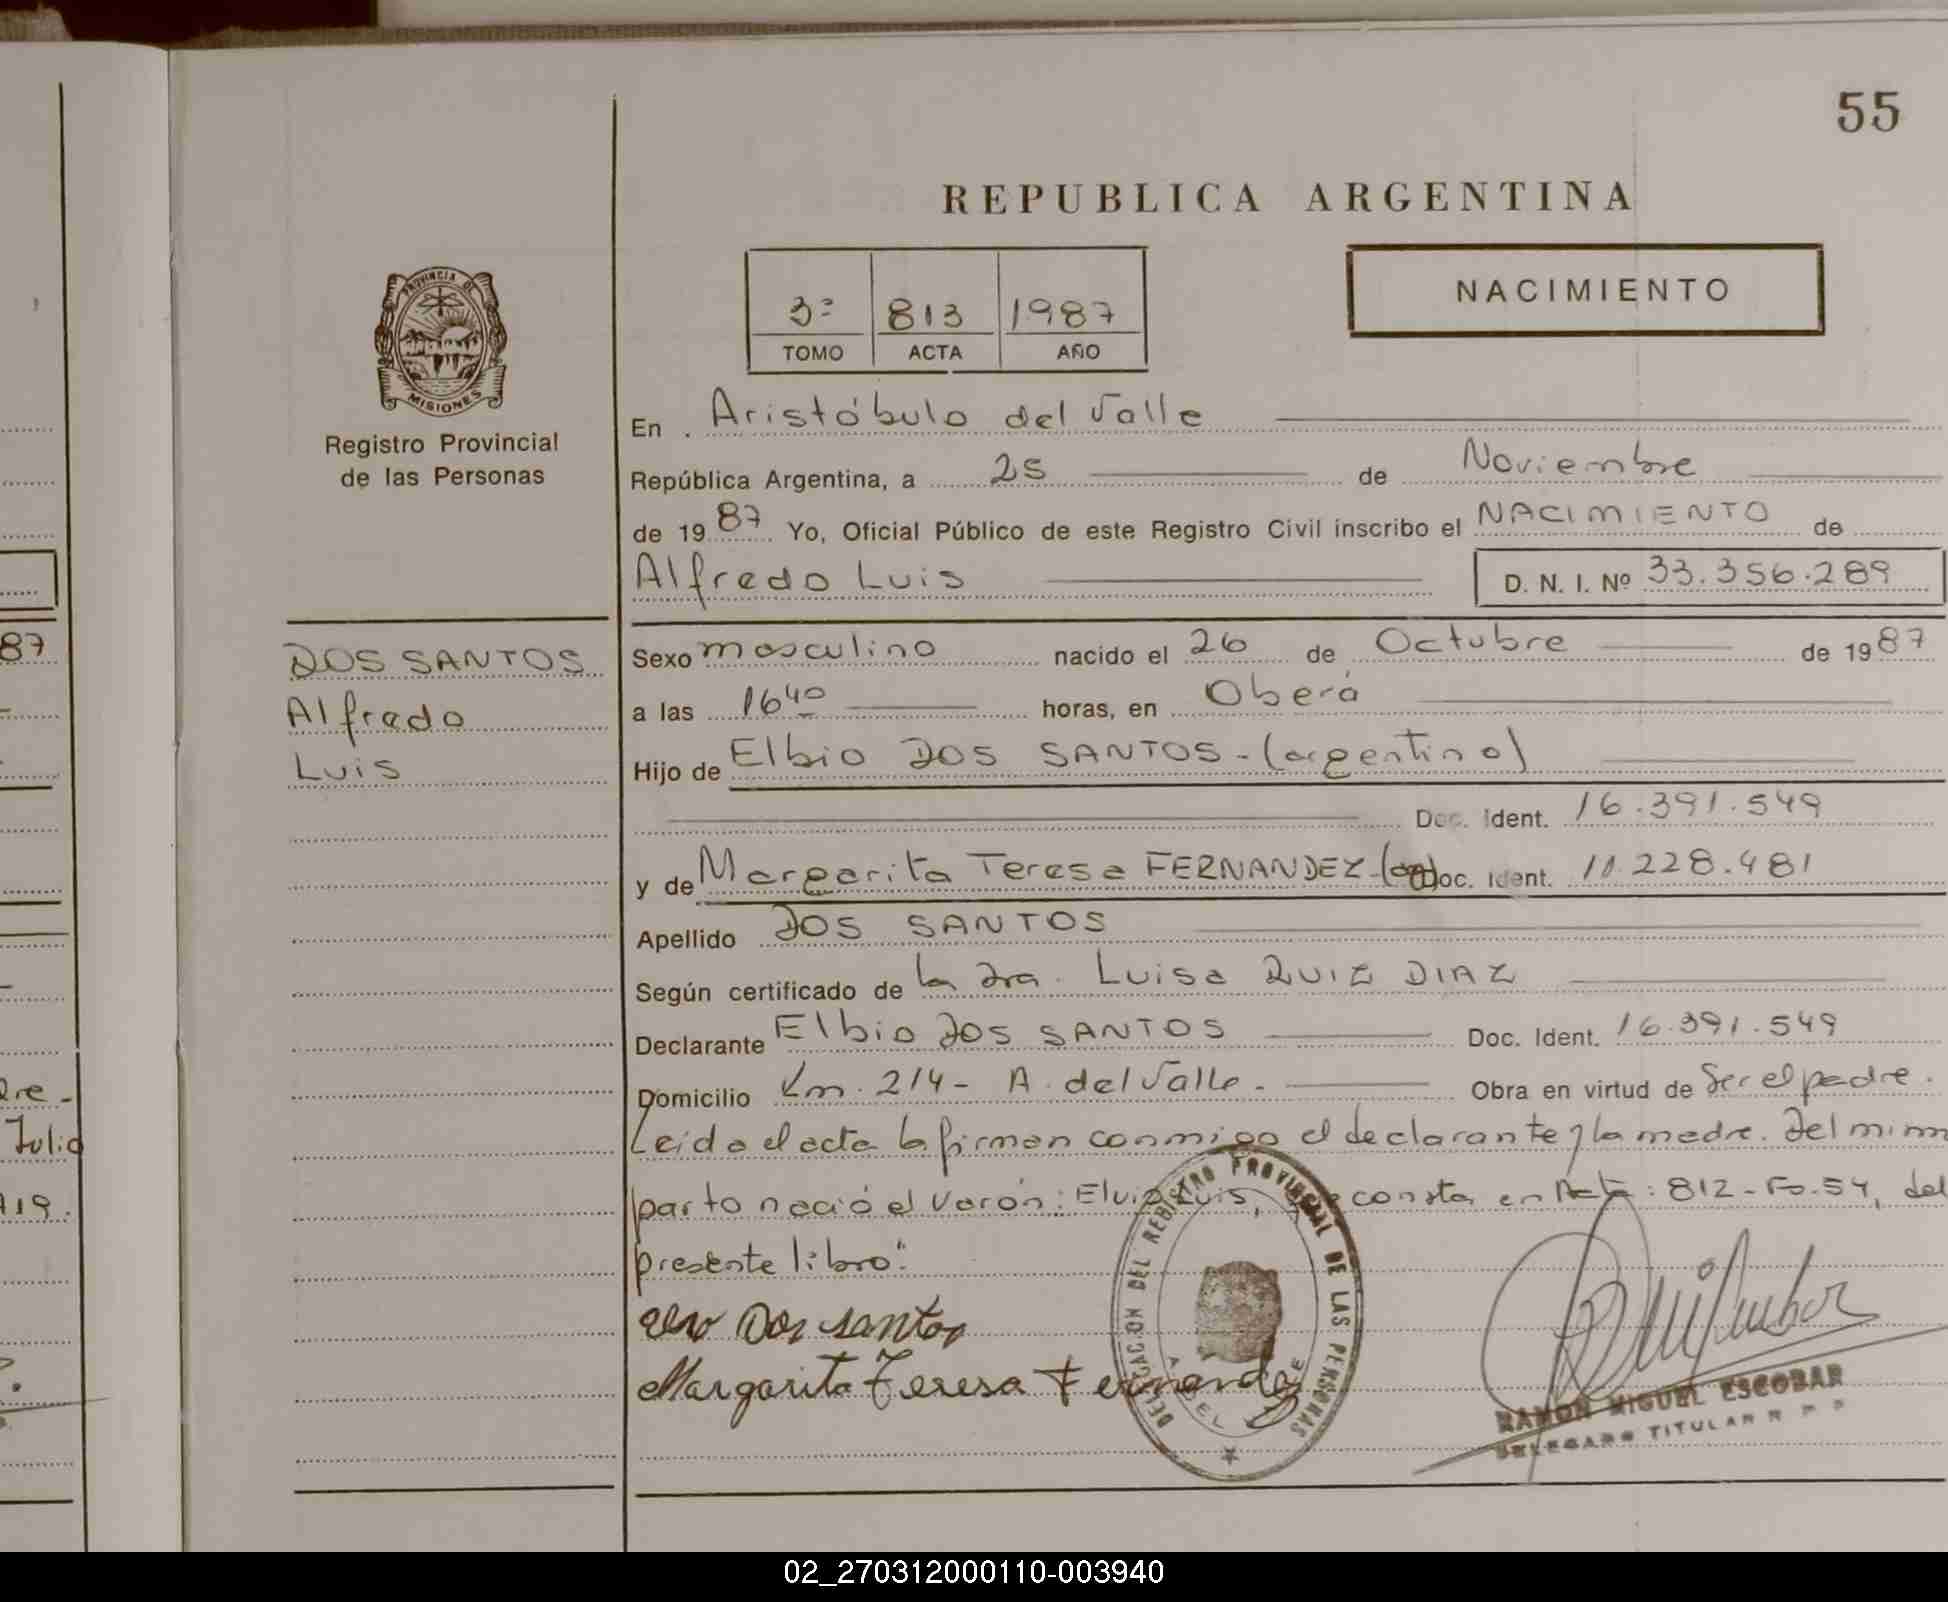 55
REPUBLICA ARGENTINA
PROVINCIA DE
MISIONES
Registro Provincial
de las Personas
3º 813 1987
TOMO ACTA AÑO
NACIMIENTO
En Aristóbulo del Valle
República Argentina, a 25 de Noviembre
de 1987 Yo, Oficial Público de este Registro Civil inscribo el NACIMIENTO de
Alfredo Luis D. N. I. Nº 33.356.289
DOS SANTOS
Alfredo
Luis
Sexo masculino nacido el 26 de Octubre de 1987
a las 16 40 horas, en Oberá
Hijo de Elbio DOS SANTOS - (argentino)
Doc. Ident. 16.391.549
y de Margarita Teresa FERNANDEZ - Doc. Ident. 11.228.481
Apellido DOS SANTOS
Según certificado de la Dra. Luisa RUIZ DIAZ
Declarante Elbio DOS SANTOS Doc. Ident. 16.391.549
Domicilio Km. 214 - A. del Valle. Obra en virtud de Ser el padre.
Leida el acta la firman conmigo el declarante y la madre. Del mism
parto nació el varón: Elvio Luis, consta en Acta: 812 - Fo. 54, del
presente libro".
Dos santos
Margarita Teresa Fernandez
DELEGACION DEL REGISTRO PROVINCIAL DE LAS PERSONAS
RAMON MIGUEL ESCOBAR
DELEGADO TITULAR R P P
87
dre -
Julio
419.
02_270312000110-003940